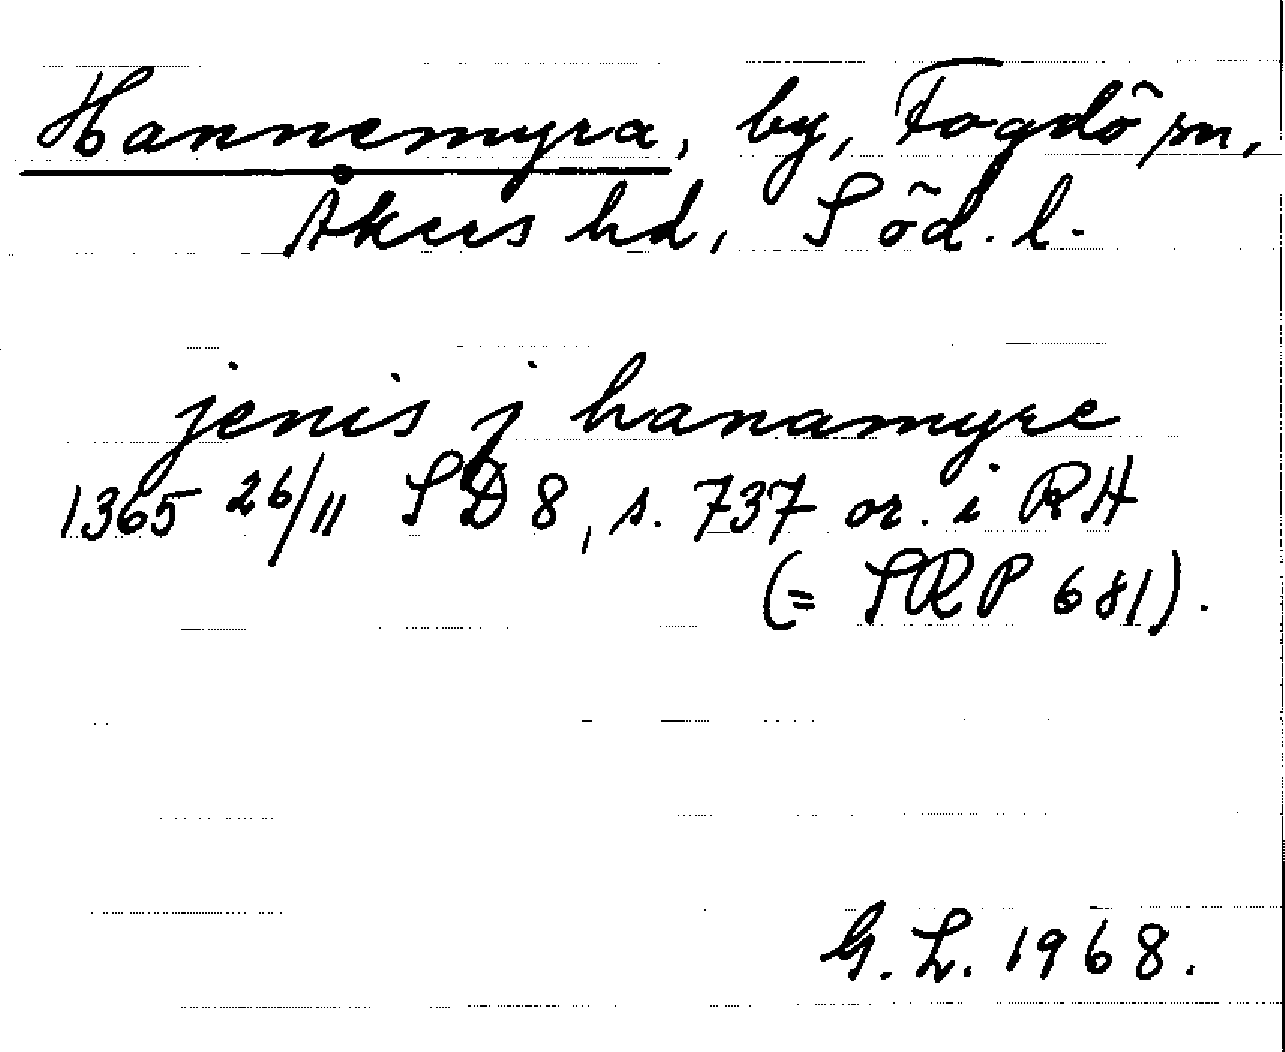 Hannemyra, by, Fogdö sn,
Åkers hd, Söd. l.
jenis j hanamyre
1365 26/11 SD 8, s. 737 or. i RH
(= SRP 681).
G. L. 1968.